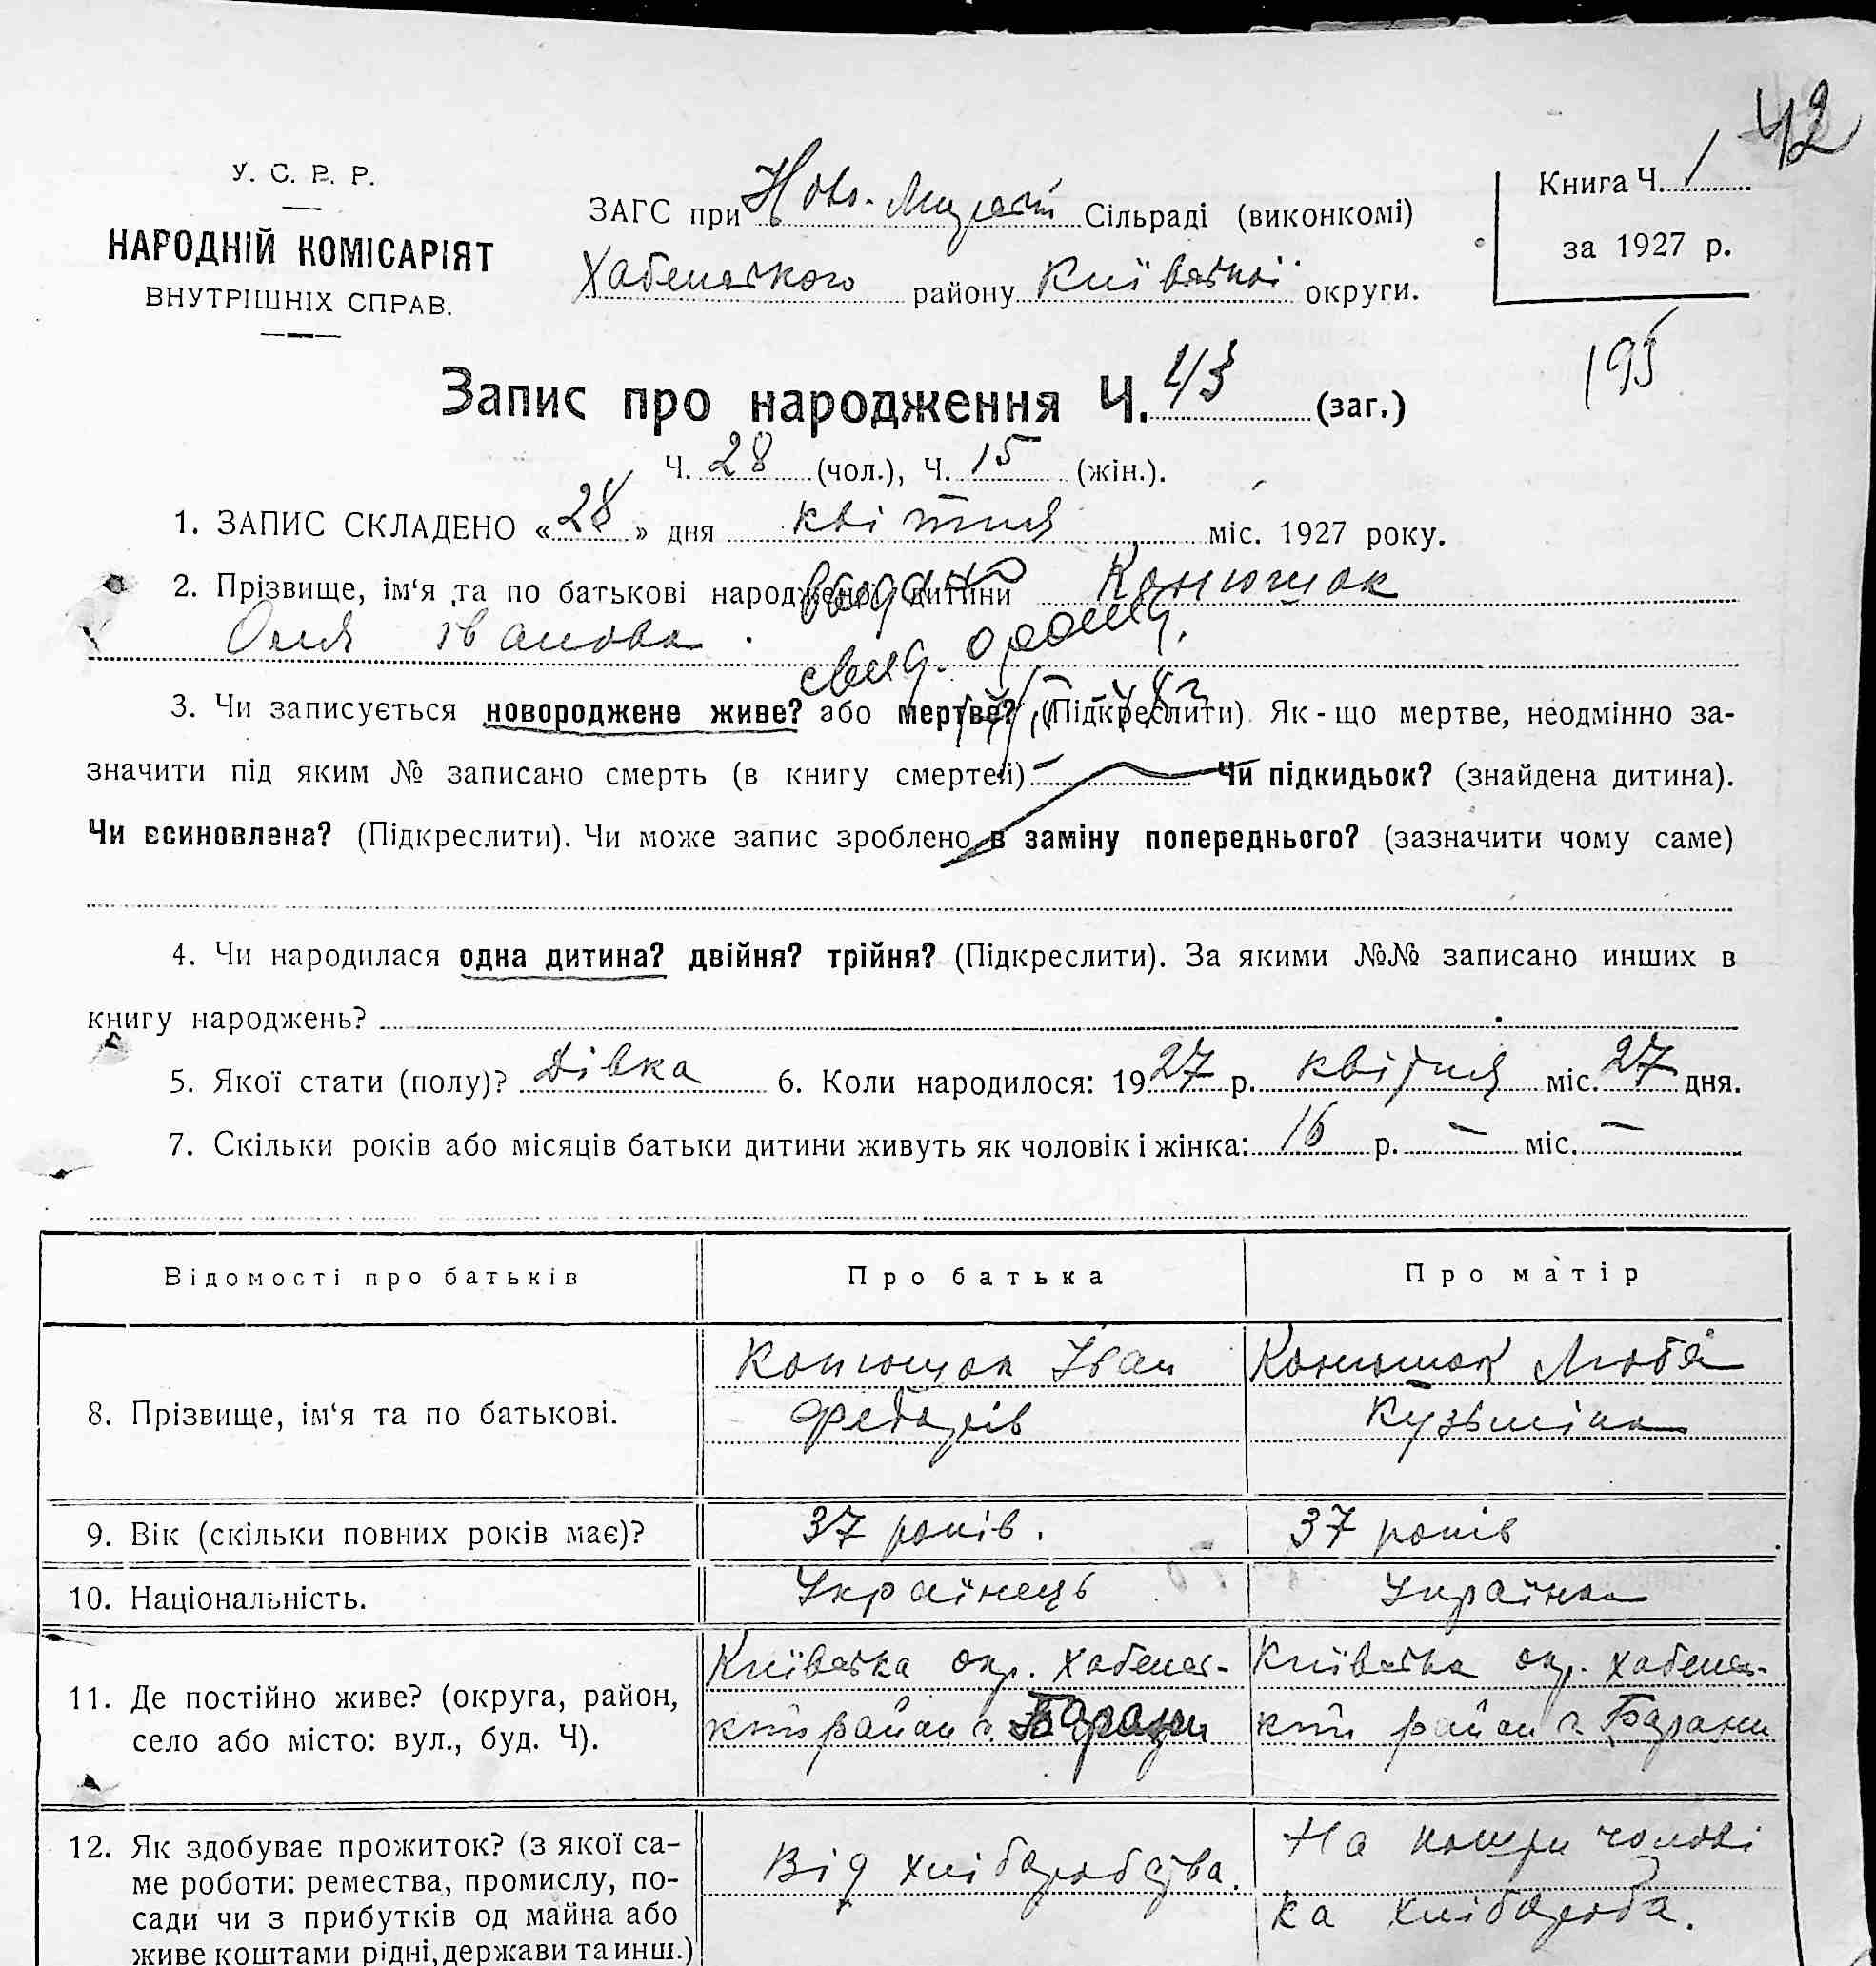 42
У. С. Р. Р.
НАРОДНІЙ КОМІСАРІЯТ
ВНУТРІШНІХ СПРАВ.
ЗАГС при Ново-Мирській Сільраді (виконкомі)
Хабенського району Київської округи.
Книга Ч. 1
за 1927 р.
195
Запис про народження Ч. 43 (заг.)
Ч. 28 (чол.), Ч. 15 (жін.).
1. ЗАПИС СКЛАДЕНО «28» дня квітня міс. 1927 року.
2. Прізвище, ім‘я та по батькові народженої дитини Конюшок
Оля Іванова.
выдано
свид. о рожд.
3. Чи записується новороджене живе? або мертве? (Підкреслити). Як-що мертве, неодмінно за-
значити під яким № записано смерть (в книгу смертей) – Чи підкидьок? (знайдена дитина).
Чи всиновлена? (Підкреслити). Чи може запис зроблено в заміну попереднього? (зазначити чому саме)
4. Чи народилася одна дитина? двійня? трійня? (Підкреслити). За якими №№ записано инших в
книгу народжень?
5. Якої стати (полу)? Дівка 6. Коли народилося: 1927 р. квітня міс. 27 дня.
7. Скільки років або місяців батьки дитини живуть як чоловік і жінка: 16 р. – міс. –
Відомості про батьків Про батька Про матір
8. Прізвище, ім‘я та по батькові.
Конюшок Іван
Федорів
Конюшок Любя
Кузьміна
9. Вік (скільки повних років має)? 37 років. 37 років
10. Національність. Українець Українка
11. Де постійно живе? (округа, район,
село або місто: вул., буд. Ч).
Київська окр. Хабенс-
кий район с. Барани
Київська окр. Хабенс-
кий район с. Барани
12. Як здобуває прожиток? (з якої са-
ме роботи: ремества, промислу, по-
сади чи з прибутків од майна або
живе коштами рідні, держави та инш.)
Від хліборобства.
На кошти чолові
ка хлібороба.